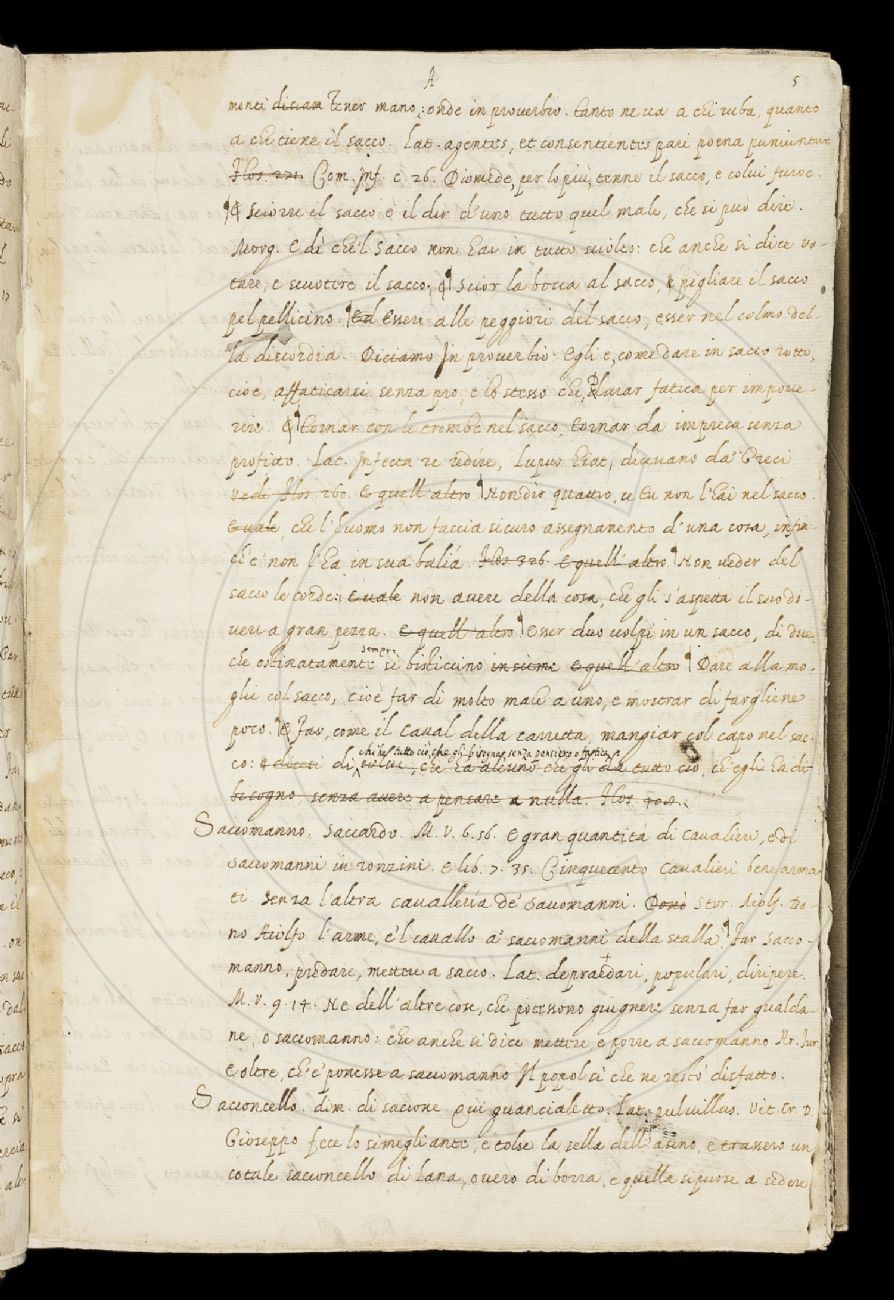 A 5
menti diciam Tener mano; onde in proverbio. tanto ne va a chi ruba, quanto
a chi tiene il sacco. Lat. agentes, et consentientes pari poena puniuntur
Flos. 221. Com. Inf. c. 26. Diomede, per lo più, tenne il sacco, e colui furoe.
& Sciorre il sacco è il dir d'uno tutto quel male, che si può dire.
Morg. E dì che 'l sacco non hai in tutto sciolto: che anche si dice vo-
tare, e scuotere il sacco, & Scior la bocca al sacco, e pigliare il sacco
pel pellicino. Ed Essere alle peggiori del sacco, esser nel colmo del-
la discordia. Diciamo In proverbio. Egli è, come dare in sacco rotto,
cioè, affaticarsi senza pro, e lo stesso che, durar fatica per impove-
rire. & Tornar con le trombe nel sacco, tornar da impresa senza
profitto. Lat. Infecta re redire, Lupus hiat, dicevano da' Greci
vedi Flos. 260. E quell'altro Non dir quattro, se tu non l'hai nel sacco.
E vale, che l'huomo non faccia sicuro assegnamento d'una cosa, infin
che non l'ha in sua balìa. Flos 326. E quell'altro Non veder del
sacco le corde: E vale non avere della cosa, che gli s'aspetta il suo do-
vere a gran pezza. E quell'altro Esser duo volpi in un sacco, di due,
che ostinatamente sempre si bisticcino insieme E quell'altro Dare alla mo-
glie col sacco, cioè far di molto male a uno, e mostrar di fargliene
poco. & Far, come il caval della carretta, mangiar col capo nel sac-
co: e dicesi di chi ha tutto ciò, che gli bisogna, senza pensiero o fatica colui, che ha alcuno che gli dà tutto ciò, ch'egli ha di
bisogno, senza avere a pensare a nulla. Flos
Saccomanno. Saccardo. M. V. 6. 56. E gran quantità di cavalieri, e di
saccomanni in ronzini. E lib. 7. 35. Cinquecento cavalieri bene arma-
ti senza l'altra cavalleria de' saccomanni. Donò Stor. Aiolf. Do-
nò Aiolfo l'arme, e 'l cavallo a' saccomanni della stalla. Far sacco-
manno, predare, mettere a sacco. Lat. depraedari, populari, diripere.
M. V. 9. 14. Ne dell'altre cose, che potessono giugnere senza far gualda-
ne, o saccomanno: che anche si dice mettere e porre a saccomanno Ar. Fur.
E oltre, ch'e' ponesse a saccomanno Il popol sì che ne restò disfatto.
Sacconcello. dim. di saccone. Qui guancialetto. Lat. pulvillus. Vit. Cr. D.
Gioseppo fece lo simigliante, e tolse la sella dell'asino, e trassero un
cotale sacconcello di lana, o vero di borra, e quella si puose a sedere